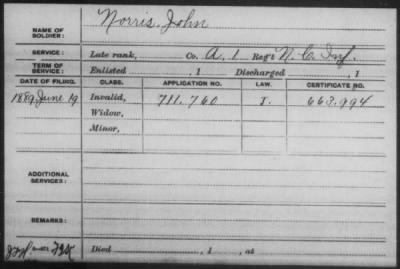 NAME OF SOLDIER: Norris, John
SERVICE: Late rank, Co. A, 1 Reg't N. C. Inf.
TERM OF SERVICE: Enlisted , 1 Discharged , 1
DATE OF FILING. CLASS. APPLICATION NO. LAW. CERTIFICATE NO.
1889 June 19 Invalid, 711.760 J. 663.994
Widow,
Minor,
ADDITIONAL SERVICES:
REMARKS:
Died , 1 , at